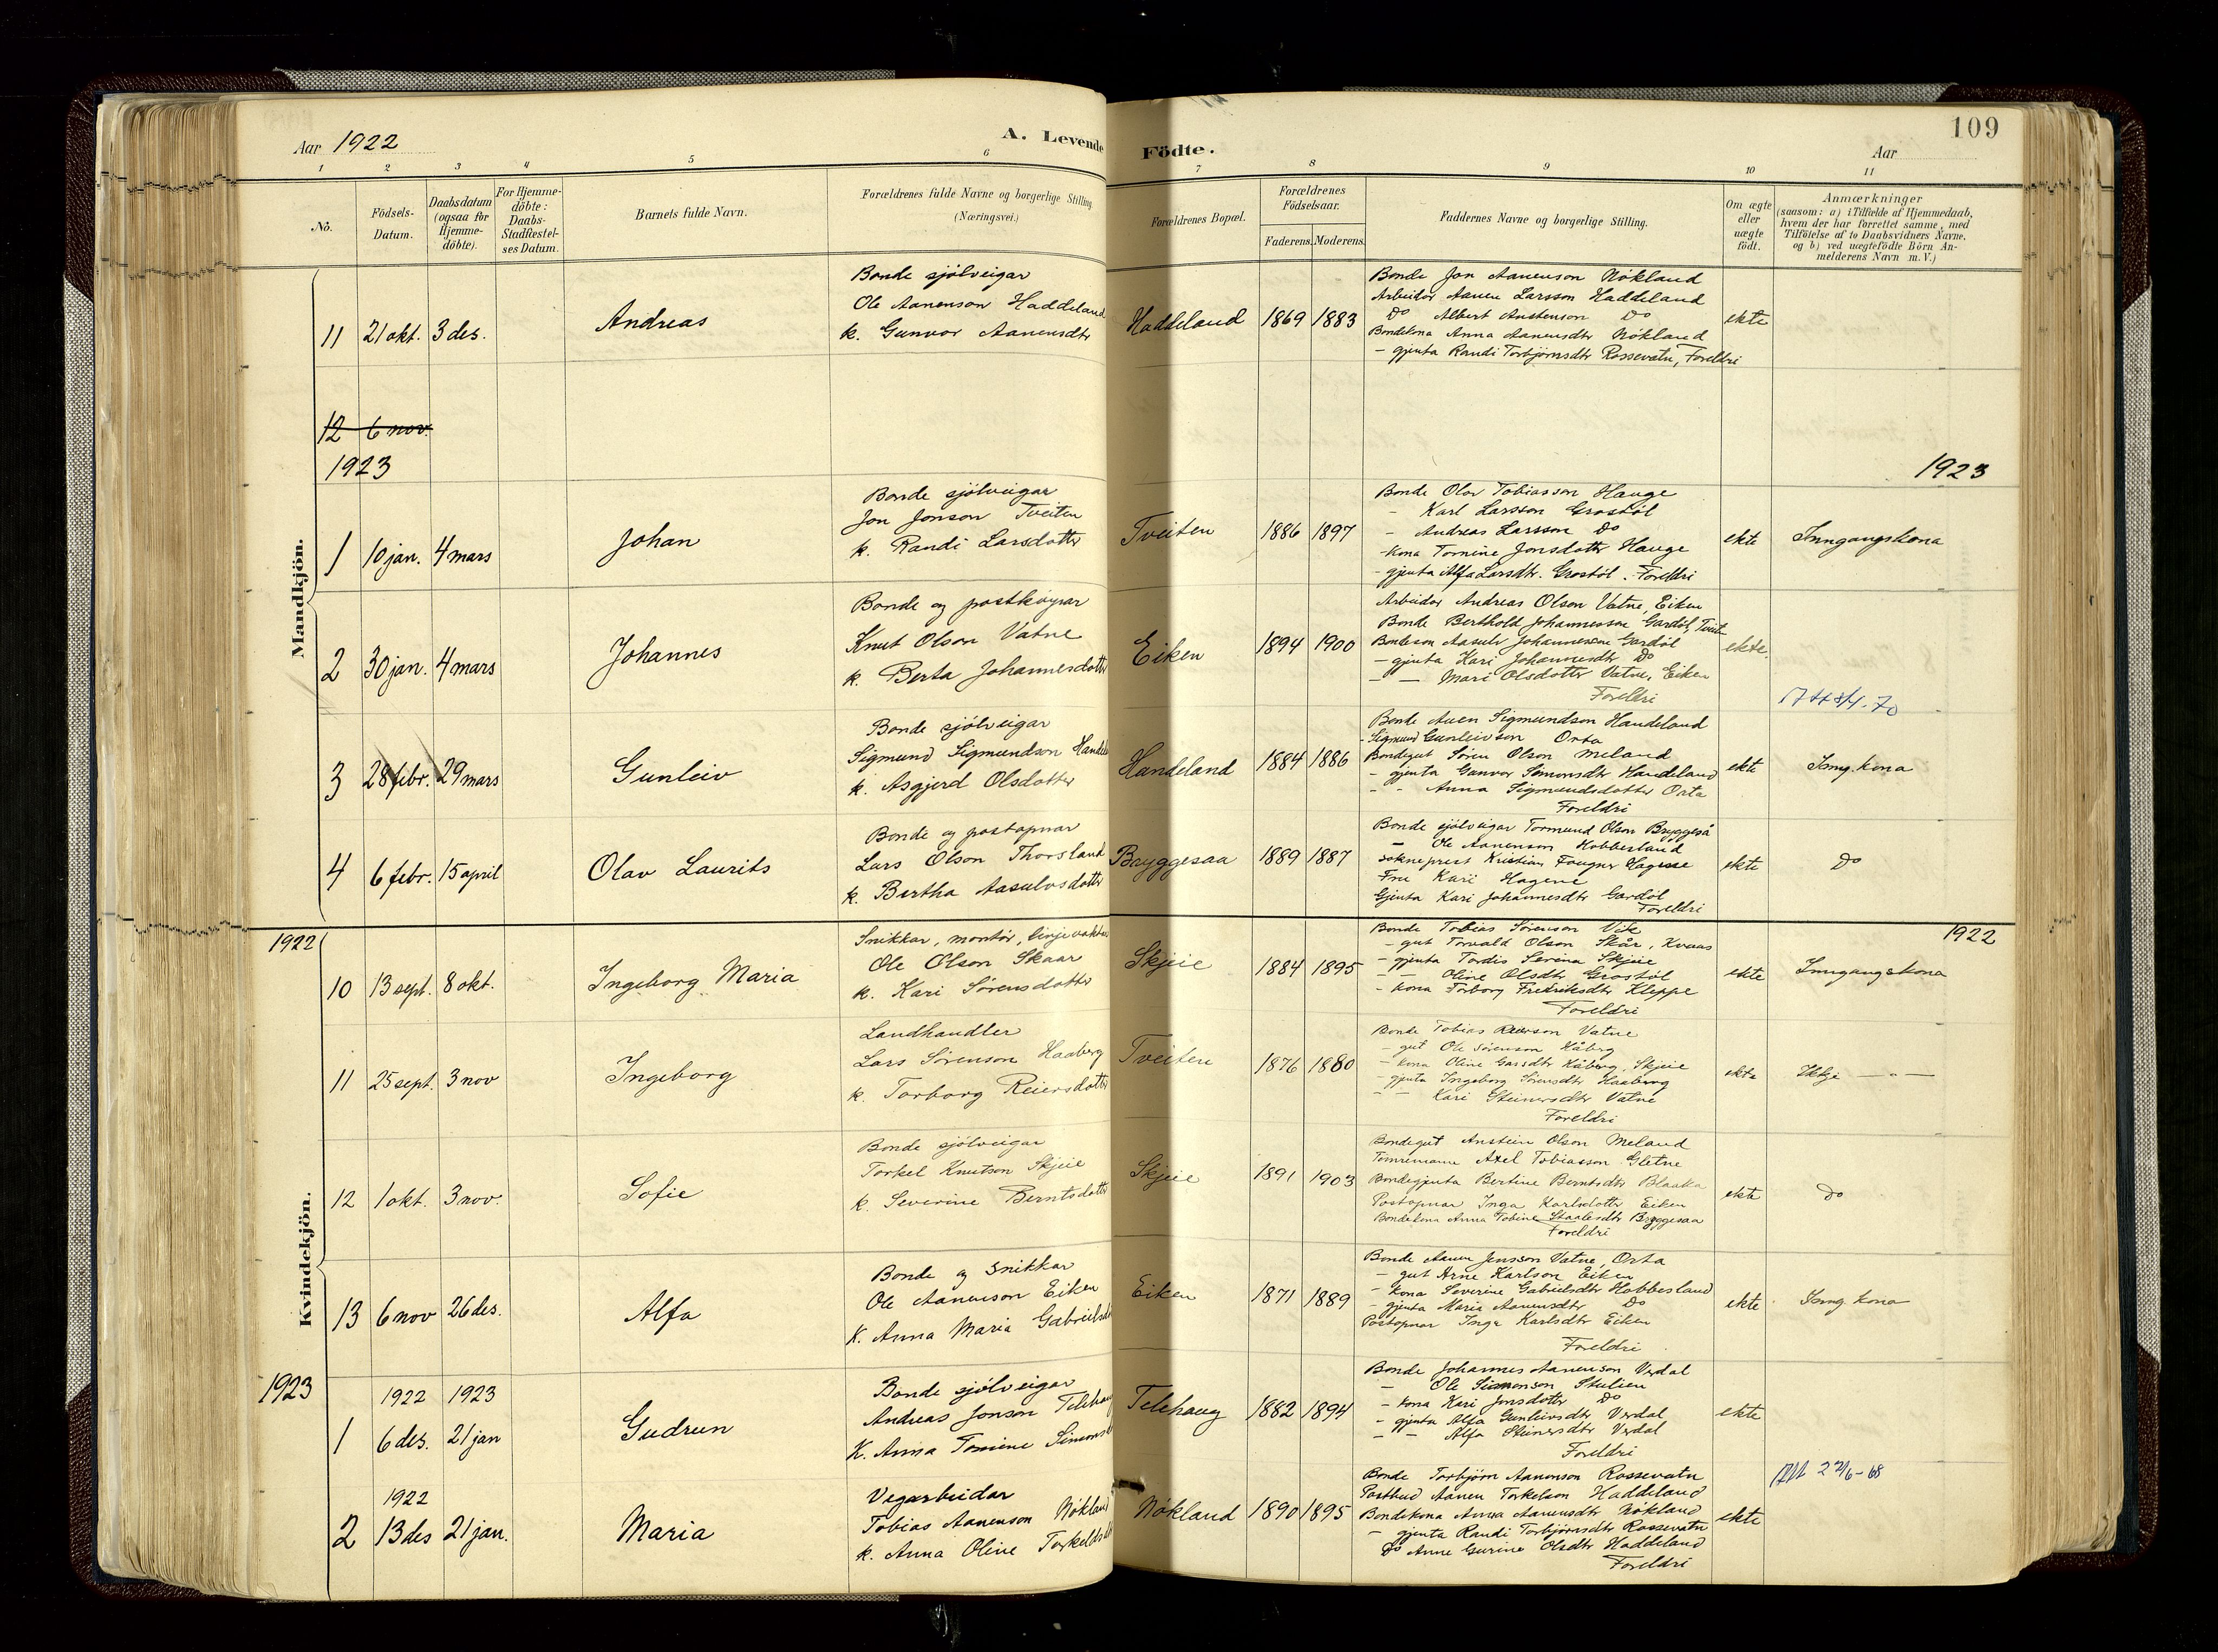 109
Aar 1922
A. Levende Födte.
Aar
1 2 3 4 5 6 7 8 9 10 11
No.
Födsels-Datum.
Daabsdatum (ogsaa for Hjemme-döbte).
For Hjemme-döbte: Daabs-Stadfæstel-ses Datum.
Barnets fulde Navn.
Forældrenes fulde Navne og borgerlige Stilling (Næringsvei.)
Forældrenes Bopæl.
Forældrenes Födselsaar.
Faderens. Moderens.
Faddernes Navne og borgerlige Stilling.
Om ægte eller uægte födt.
Anmærkninger
(saasom: a) i Tilfælde af Hjemmedaab,
hvem der har forrettet samme, med
Tilföielse af to Daabsvidners Navne,
og b) ved uægtefödte Börn An-
melderens Navn m. V.)
Mandkjön.
11 21 okt. 3 des. Andreas
Bonde sjölveigar
Ole Aanenson Haddeland
k. Gunvor Aanensdtr
Haddeland 1869 1883
Bonde Jon Aanenson Nökland
Arbeidar Aanen Larsson Haddeland
Do Albert Austenson Do
Bondekona Anna Aanensdtr Nökland
- gjenta Randi Torbjörnsdtr Rossevatn, Foreldri
ekte
12 6 nov.
1923
1923
1 10 jan. 4 mars Johan
Bonde sjölveigar
Jon Jonson Tveiten
k. Randi Larsdotter
Tveiten 1886 1897
Bonde Olav Tobiasson Hauge
- Karl Larsson Grostöl
- Andreas Larsson Do
- kona Tomine Jonsdotter Hauge
- gjenta Alfa Larsdtr. Grostöl. Foreldri
ekte Inngangskona
2 30 jan. 4 mars Johannes
Bonde og postköyrar
Knut Olson Vatne
k. Berta Johannesdotter
Eiken 1894 1900
Arbeidar Andreas Olson Vatne, Eiken
Bonde Berthold Johannesson Gardöl, Tveit
Bondeson Aasulv Johannesson Gardöl
- gjenta Kari Johannesdtr Do
- - Mari Olsdotter Vatne, Eiken
Foreldri
ekte.
3 28 febr. 29 mars Gunleiv
Bonde sjölveigar
Sigmund Sigmundson Handel
k. Asgjerd Olsdotter
Handeland 1884 1886
Bonde Auen Sigmundson Handeland
- Sigmund Gunleivson Orta
Bondegut Sören Olson Meland
- gjenta Gunvor Simonsdtr Handeland
- - Anna Sigmundsdotter Orta
Foreldri
ekte Inng. kona
4 6 febr. 15 april Olav Laurits
Bonde og postopnar
Lars Olson Thorsland
k. Bertha Aasulvsdotter
Bryggesaa 1889 1887
Bonde sjölveigar Tormund Olson Bryggeså
- Ole Aanenson Hobbesland
Sokneprest Kristian Fougner Hagene
Fru Kari Hagene
Gjenta Kari Johannesdtr Gardöl
Foreldri
ekte Do
Kvindekjön.
1922
1922
10 13 sept. 8 okt. Ingeborg Maria
Snikkar, montör, linjevakter
Ole Olson Skaar
k. Kari Sörensdotter
Skjeie 1884 1895
Bonde Tobias Sörenson Vike
- gut Torvald Olson Skår, Kvaas
- gjenta Tordis Serina Skjeie
- - Oline Olsdtr Grostöl
- kona Torborg Fredriksdtr Kleppe
Foreldri
ekte Inngangskona
11 25 sept. 3 nov Ingeborg
Landhandler
Lars Sörenson Haaberg
k. Torborg Reiersdotter
Tveiten 1876 1880
Bonde Tobias Reierson Vatne
- gut Ole Sörenson Håberg
- kona Oline Larsdtr Håberg, Skjeie
- gjenta Ingeborg Sörensdtr Haaberg
- - Kari Steinersdtr Vatne
Foreldri
ekte Ikkje — " —
12 1 okt. 3 nov. Sofie
Bonde sjölveigar
Torkel Knutson Skjeie
k. Severine Berntsdotter
Skjeie 1891 1903
Bondegut Anstein Olson Meland
Tömremann Axel Tobiasson Gletne
Bondegjenta Bertine Berntsdtr Blaaka
Postopnar Inga Karlsdotter Eiken
Bondekona Anna Tobine Staalesdtr Bryggesaa
Foreldri
ekte Do
13 6 nov 26 des. Alfa
Bonde og snikkar
Ole Aanenson Eiken
K. Anna Maria Gabrielsd
Eiken 1871 1889
Bonde Aanen Jensson Vatne, Orta
- gut Arne Karlson Eiken
- kona Severine Gabrielsdtr Hobbesland
- gjenta Maria Aanensdtr Do
Postopnar Inga Karlsdtr Eiken
Foreldri
ekte Inng. kona
1923
1922 1923
1 6 des. 21 jan Gudrun
Bonde sjölveigar
Andreas Jonson Telehaug
K. Anna Tomine Simonsd
Telehaug 1882 1894
Bonde Johannes Aanenson Verdal
- Ole Simonson Stulien
- kona Kari Jonsdotter Do
- gjenta Alfa Gunleivsdtr Verdal
- - Alfa Steinersdtr Verdal
Foreldri
ekte
1922
2 13 des 21 jan. Maria
Vegarbeidar
Tobias Aanenson Nökland
k. Anna Oline Torkelsd
Nökland 1890 1895
Bonde Torbjörn Aanenson Rossevatn
Postbud Aanen Torkelson Haddeland
Bondekona Anna Aanensdtr Nökland
- gjenta Randi Torbjörnsdtr Rossevatn
Do Anne Gurine Olsdtr Haddeland
Foreldri
ekte